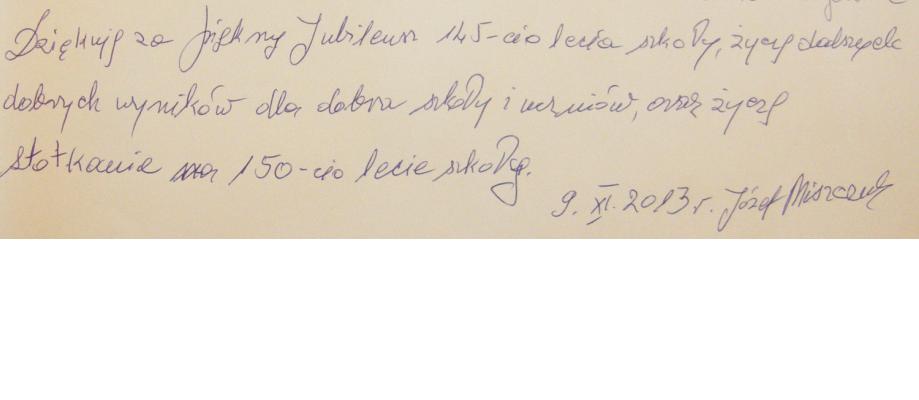 Dziękuję za piękny Jubileusz 145-cio lecia szkoły, życzę dalszych
dobrych wyników dla dobra szkoły i uczniów, oraz życzę
stotkania na 150-cio lecie szkoły.
9. XI. 2013 r. Józef Miszczuk